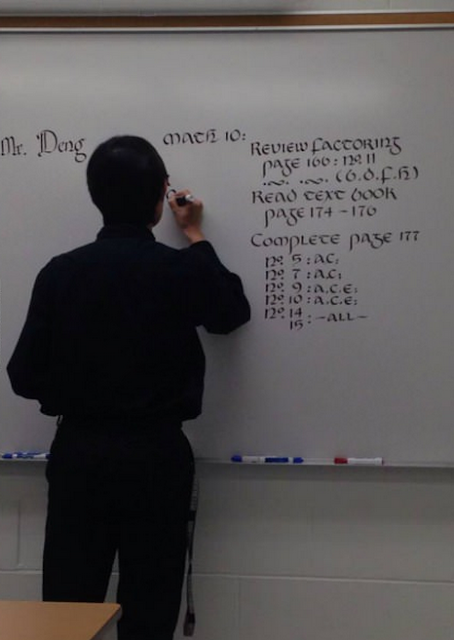 Mr. Deng
Math 10:
Review factoring
page 166: nº 11
(b.d.f.h)
Read text book
page 174-176
Complete page 177
nº 5: a.c.
nº 7: a.c.
nº 9: a.c.e.
nº 10: a.c.e.
nº 14
15: -all-